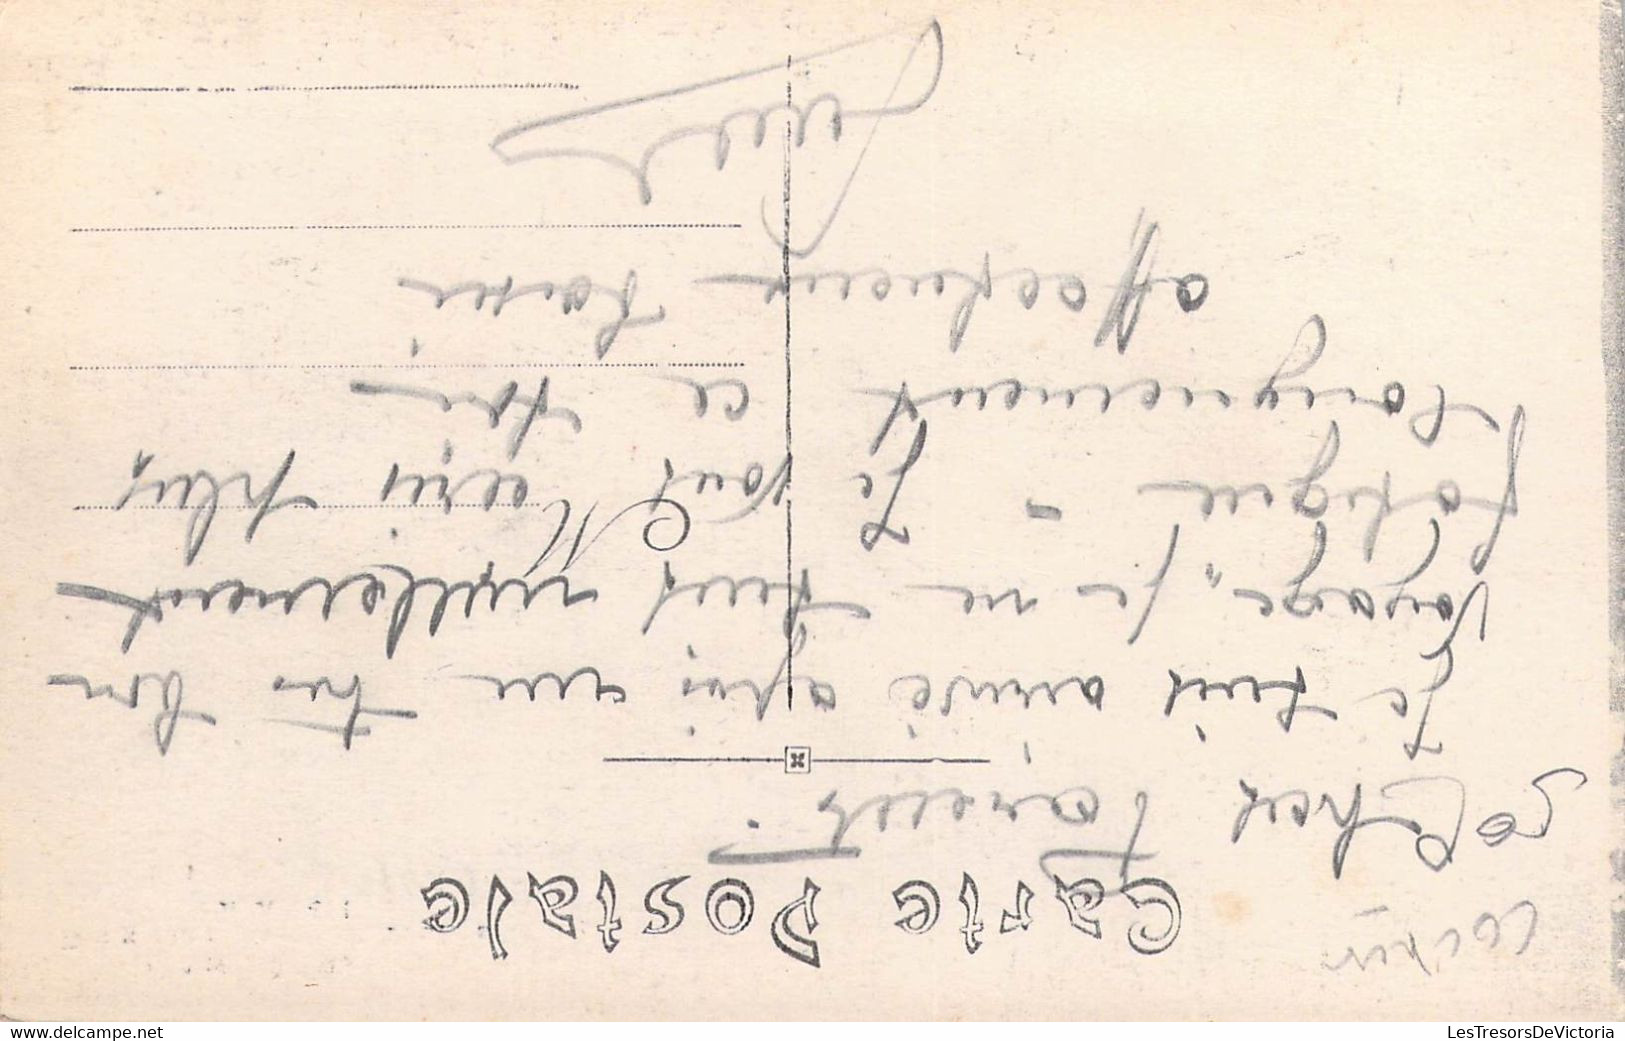 Carte Postale
Chers Parents.
Je suis arrivé après un très bon
voyage, je ne suis nullement
fatigué - Je vous écris plus
longuement ce soir
affectueux baiser
M
www.delcampe.net
LesTresorsDeVictoria